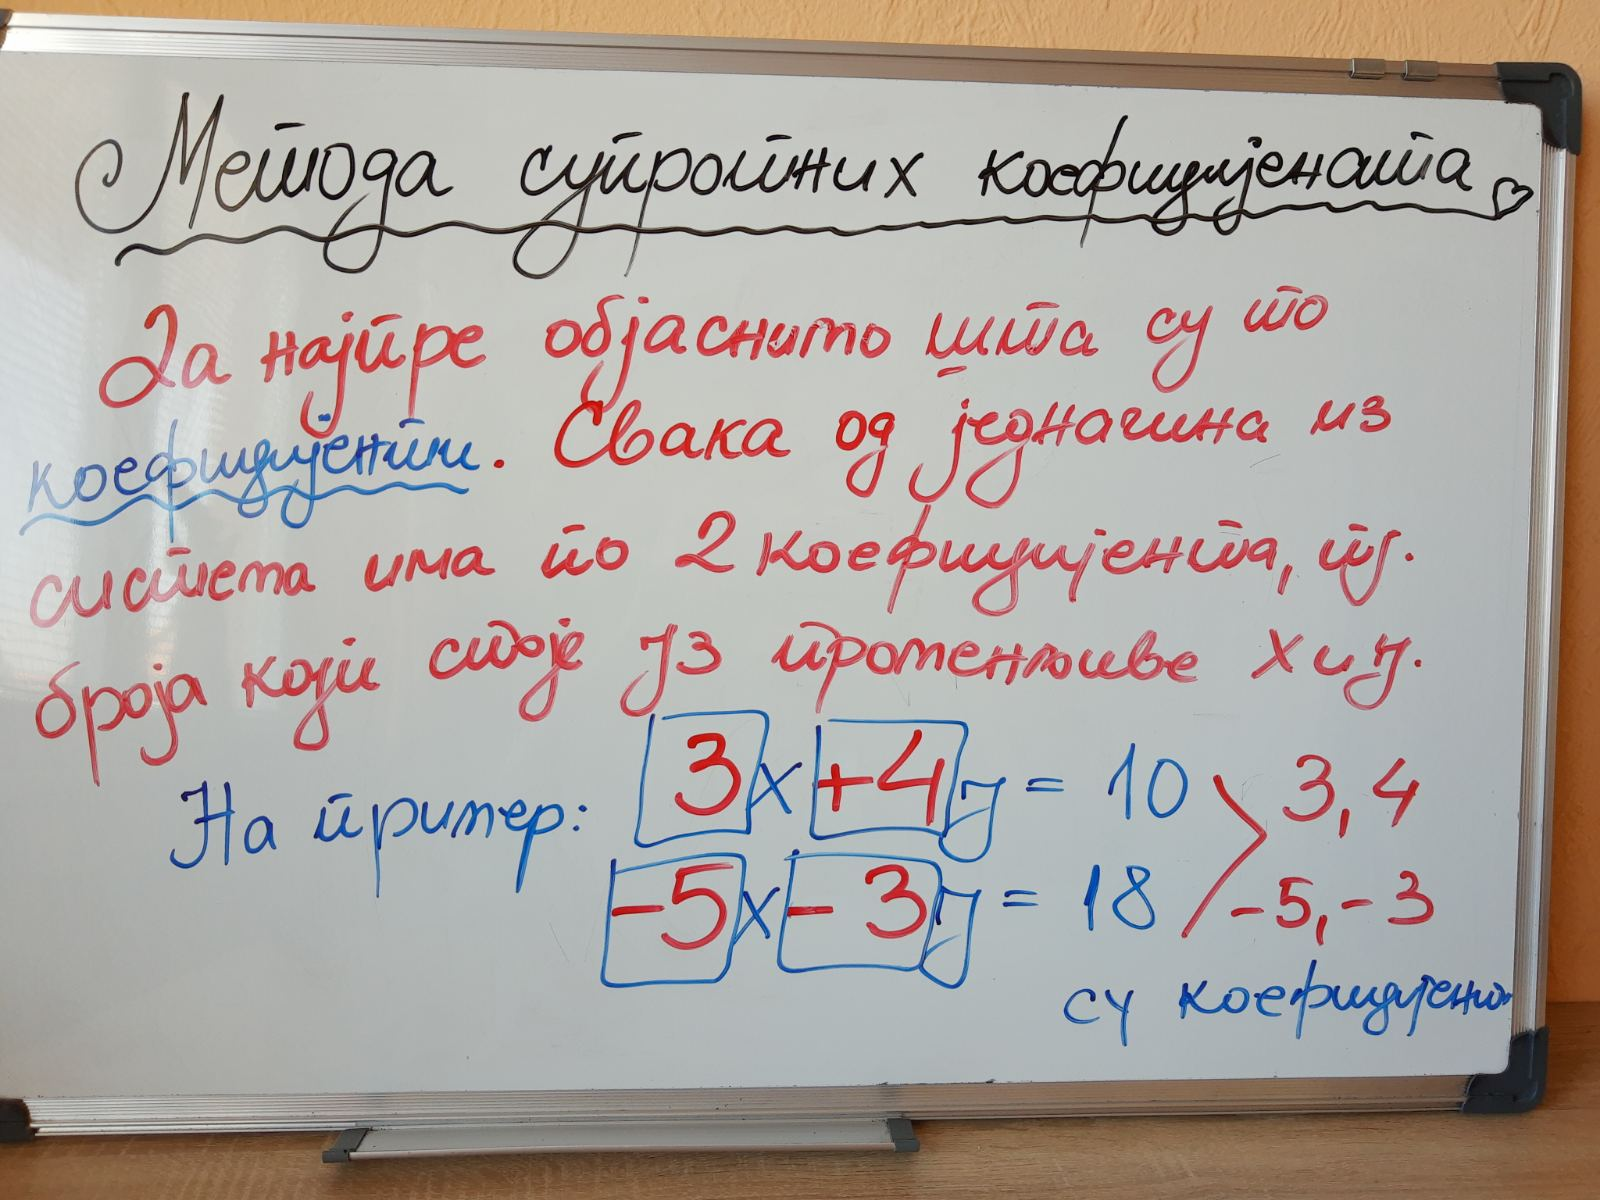 Метода супротних коефицијената
Да најпре објаснимо шта су то
коефицијенти. Свака од једначина из
система има по 2 коефицијента, тј.
броја који стоје уз променљиве x и y.
На пример: 3x +4y = 10 3, 4
-5x - 3y = 18 -5, -3
су коефицијенти